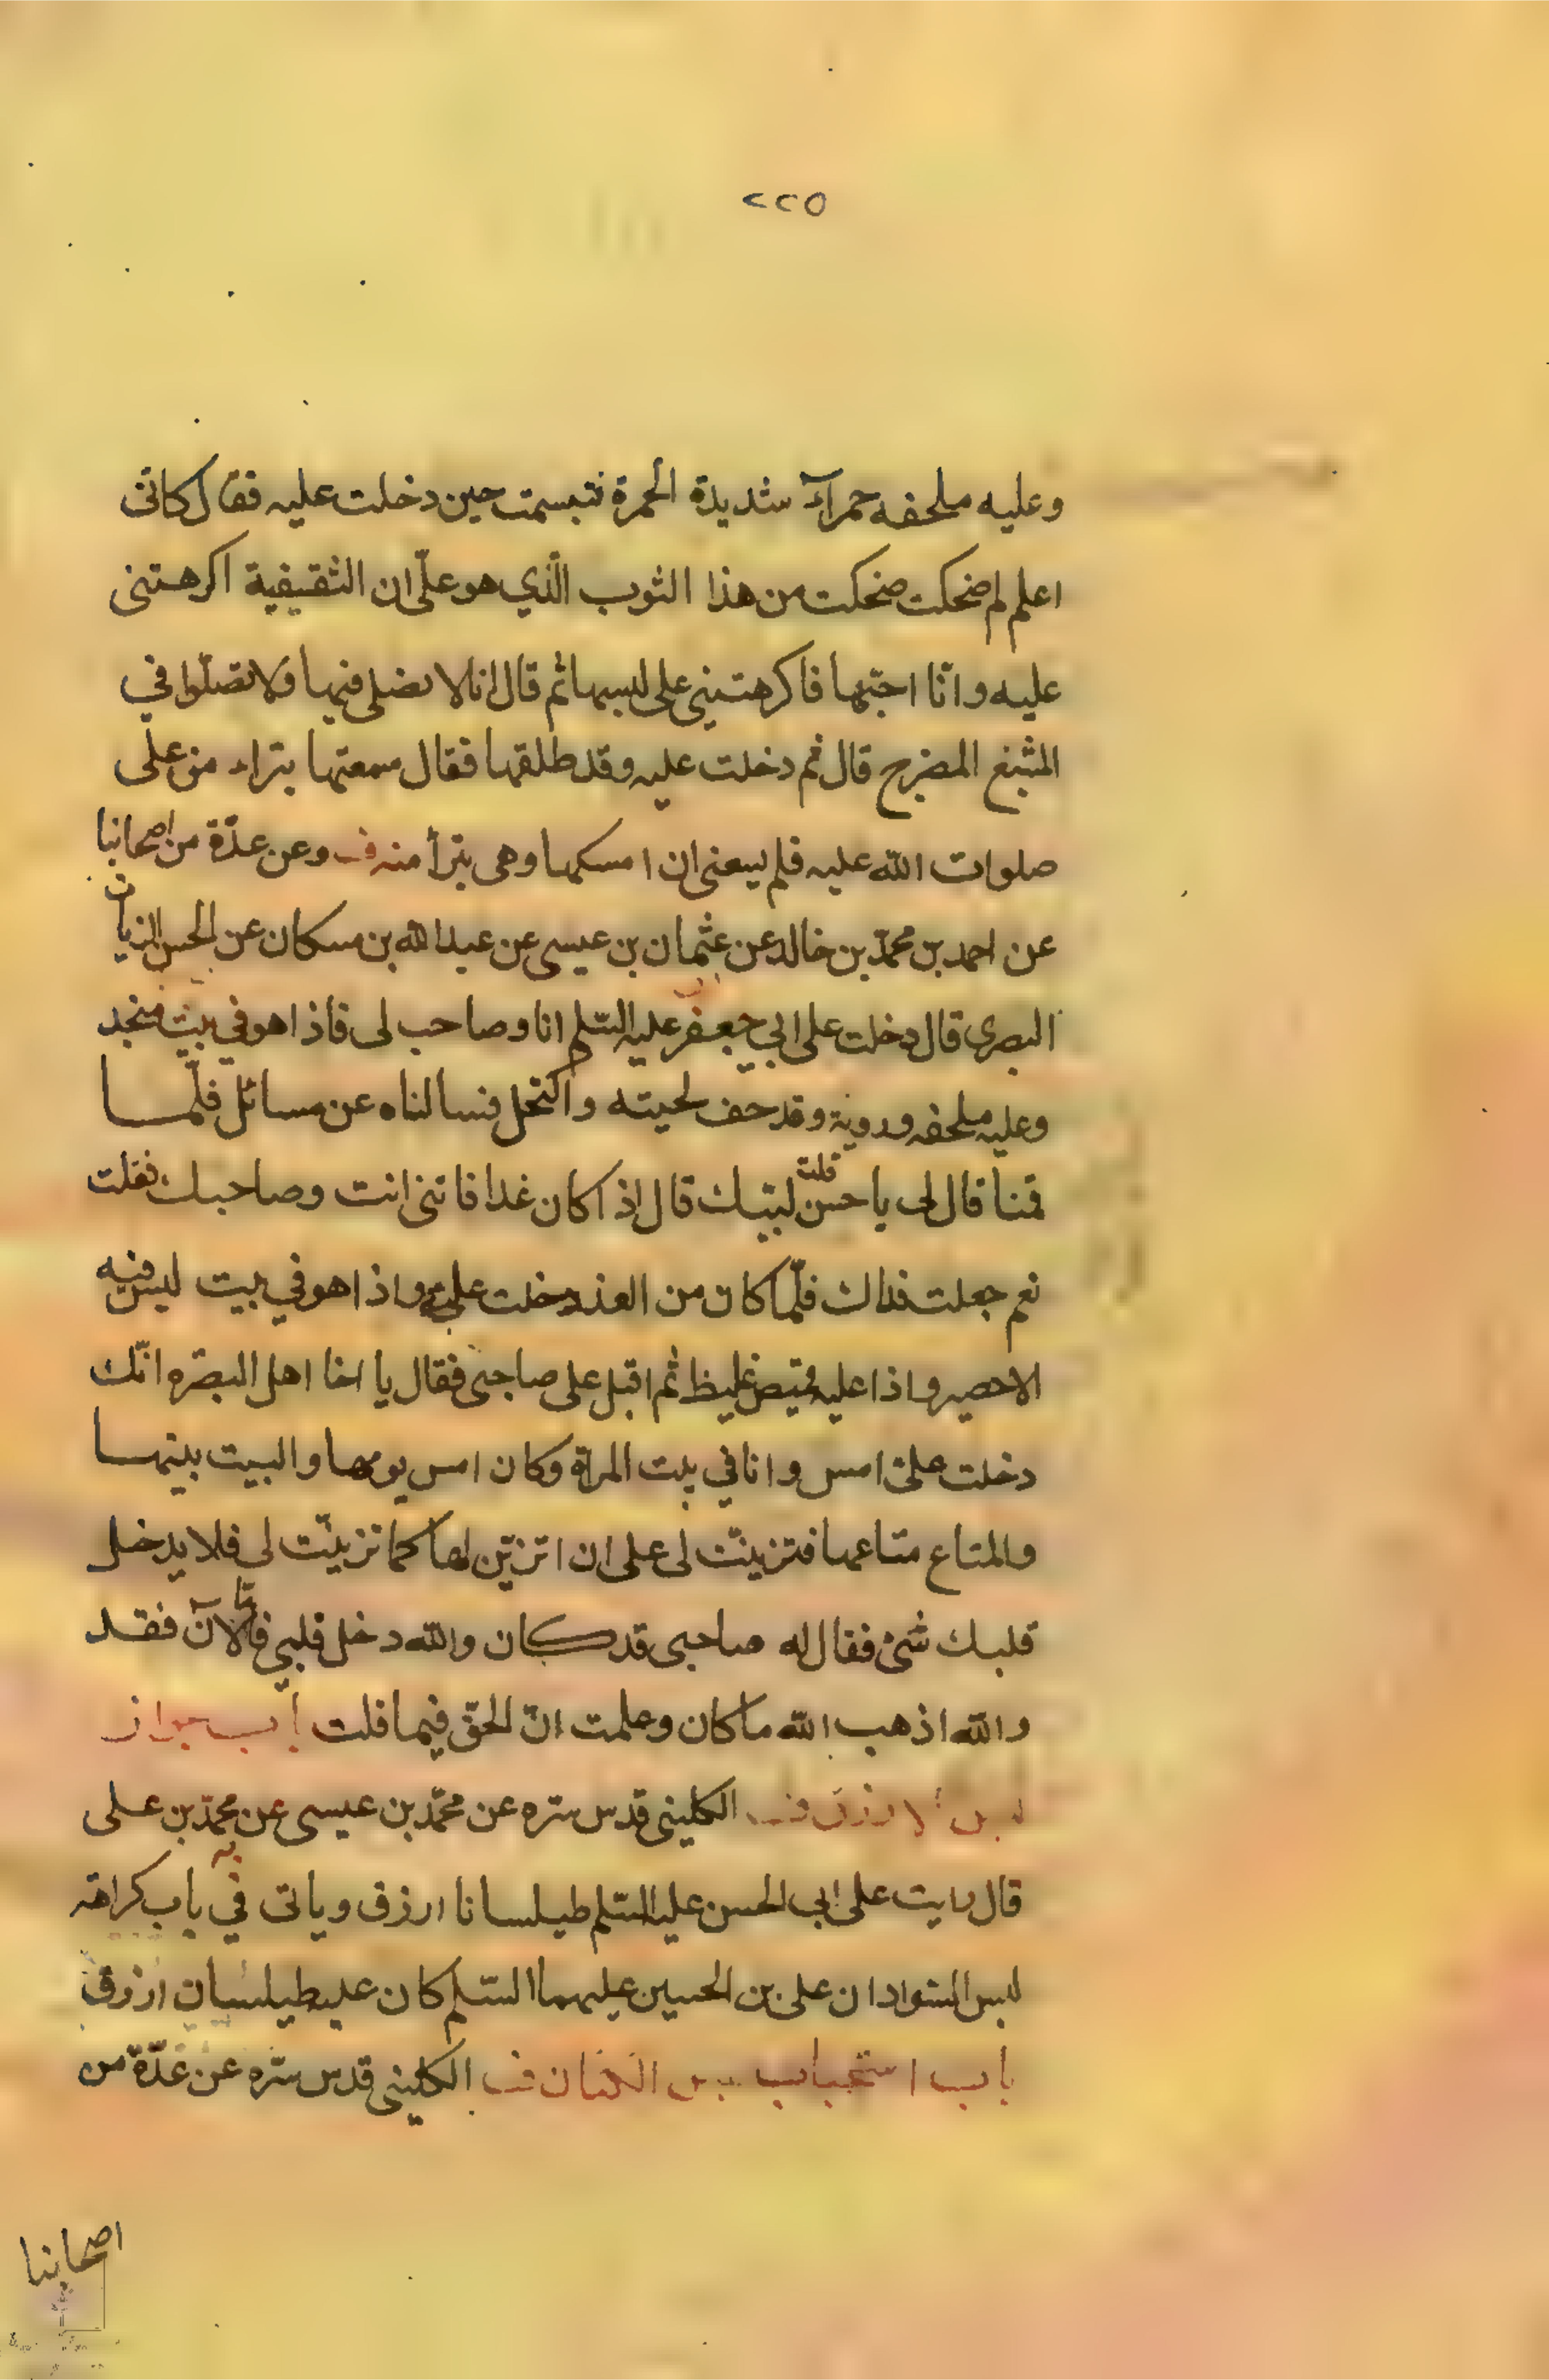 ٢٢٥
وعليه ملحفه حمراء شديدة الحمرة فتبسمت حين دخلت عليه فقال كانى
اعلم لم ضحكت ضحكت من هذا الثوب الّذي هو علّى ان الثقيفية اكرهتنى
عليه وانّا احبّها فاكرهتني على لبسها ثم قال انا لا نصلى فيها ولا تصلّوا في
المشبغ المضرح قال ثم دخلت عليه وقد طلقها فقال سمعتها يتراء من على
صلوات الله عليه فلم يسعنى ان امسكها وهى يترأ منه ف وعن عدّة من اصحابنا
عن احمد بن محمّد بن خالد عن عثمان بن عيسى عن عبد الله بن مسكان عن الحسن الزيات
البصرى قال دخلت على ابي جعفر عليه السّلم انا وصاحب لى فاذا هو في بيت منجد
وعليه ملحفه وردية وقد حف لحيته واكتحل فسالناه عن مسائل فلمّا
قمنا قال لى يا حسن قلت لبيّك قال اذا كان غدا فاتنى انت وصاحبك فقلت
نعم جعلت فداك فلّما كان من الغد دخلت عليه واذا هو في بيت ليس فيه
الا حصير واذا عليه قميص غليظ ثم اقبل على صاحبى فقال يا اخا اهل البصره انّك
دخلت علىّ امس وانا في بيت المراة وكان امس يومها والبيت بيتها
والمتاع متاعها فتزينّت لى على ان اتزيّن لها كما تزينّت لى فلا يدخل
قلبك شئ فقال له صاحبى قد كان والله دخل قلبي فامّا الآن فقد
والله اذهب الله ما كان وعلمت انّ الحقّ فيما قلت باب جواز
لبس الازرق ف الكلينى قدس سره عن محمّد بن عيسى عن محمّد بن على
قال رايت على ابى الحسن عليه السّلم طيلسانا ازرق وياتى في باب كراهة
لبس السّواد ان على بن الحسين عليهما السّلم كان عليه طيلسان ازرق
باب استحباب لبس الكتان ف الكلينى قدس سره عن عدّة من
اصحابنا